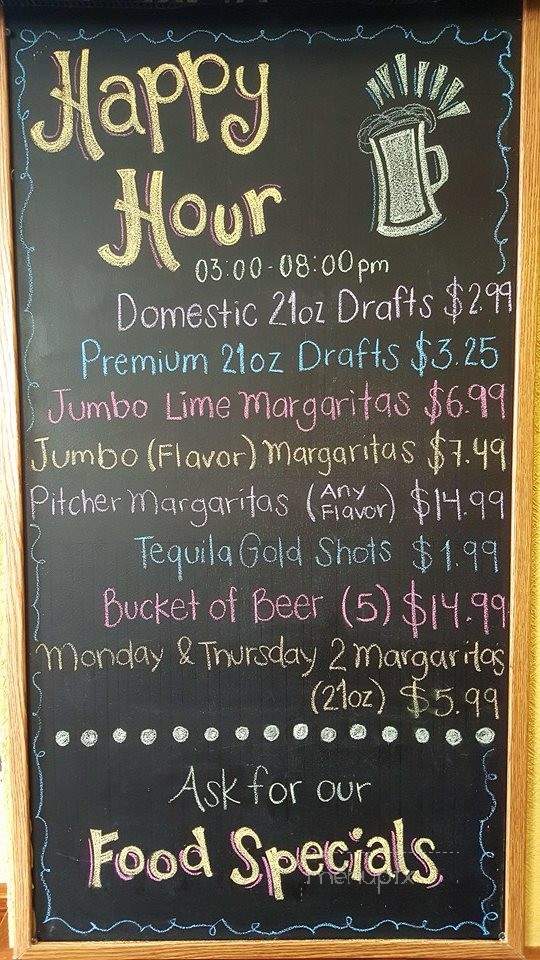 Happy
Hour
03:00-08:00pm
Domestic 21oz Drafts $2.99
Premium 21oz Drafts $3.25
Jumbo Lime Margaritas $6.99
Jumbo (Flavor) Margaritas $7.49
Pitcher Margaritas (Any Flavor) $14.99
Tequila Gold Shots $1.99
Bucket of Beer (5) $14.99
Monday & Thursday 2 Margaritas
(21oz) $5.99
Ask for our
Food Specials
menupix